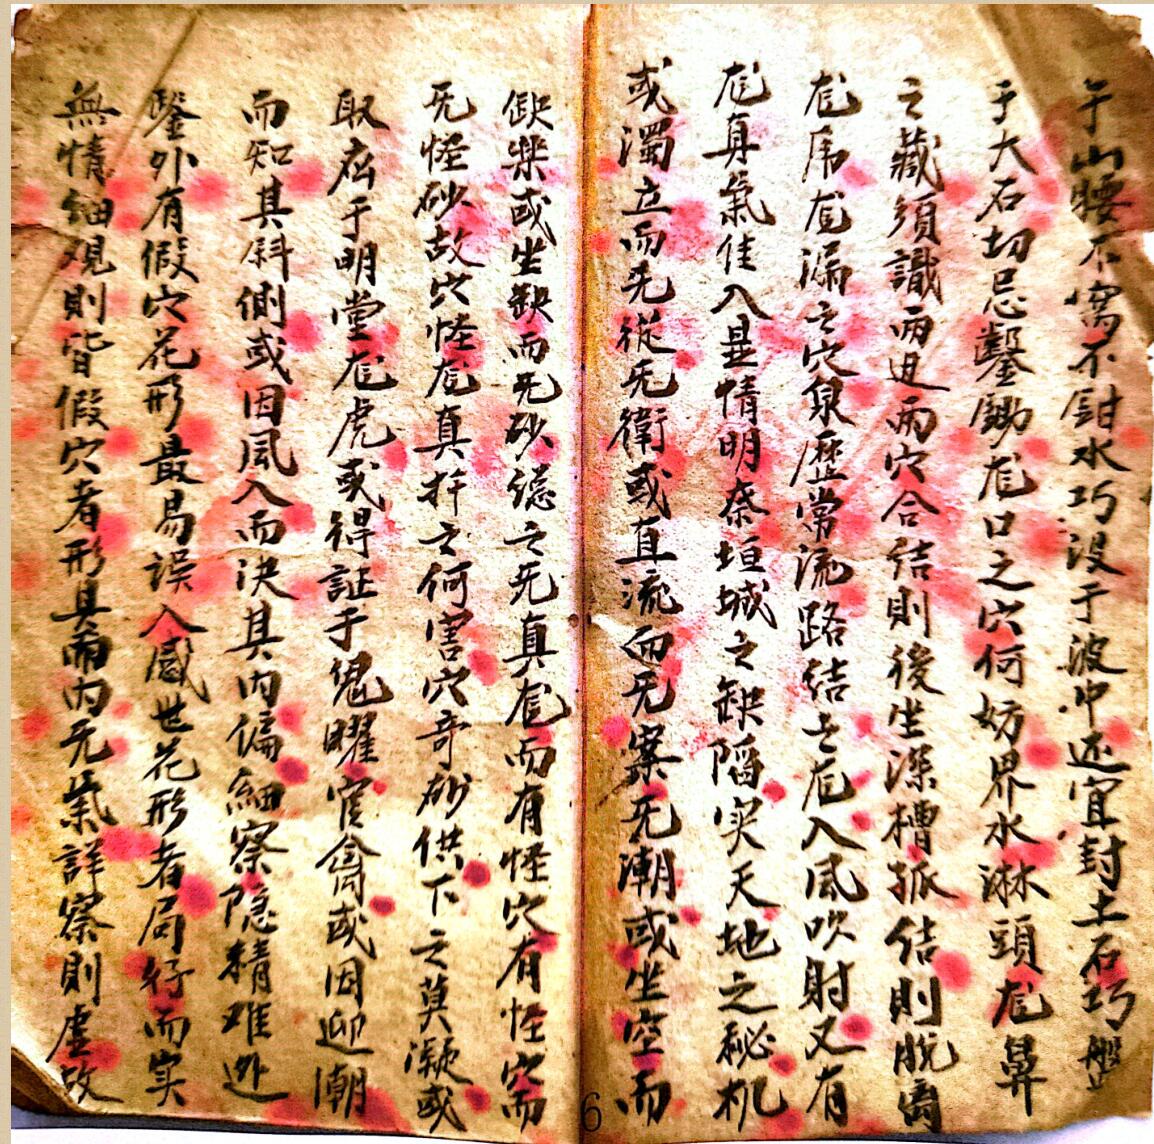 于山腰不窩不鉗水巧没于波中还宜封土石巧
于大石切忌鑿鋤尨口之穴何妨界水淋頭尨鼻
之藏須識两边两穴合结則後坐深槽孤结則脱离
尨尨漏之穴泉歷常流路结之尨入風吹射又有
尨真氣佳入显情明奈垣城之缺陷实天地之秘机
或濁立而无從无衛或直流而无案无潮或坐空而
缺樂或坐缺而无砂總之无真尨而有怪穴有怪穴而
无怪砂故穴怪尨真扦之何害穴奇砂供下之莫凝或
取応于明堂尨虎或得証于鬼曜官禽或因迎潮
而知其斜側或因風入而决其内偏細察隐精难逃
鑒外有假穴花形最易誤入惑世花形者局好而实
無情細观則皆假穴者形具而内无氣詳察則虚故
6